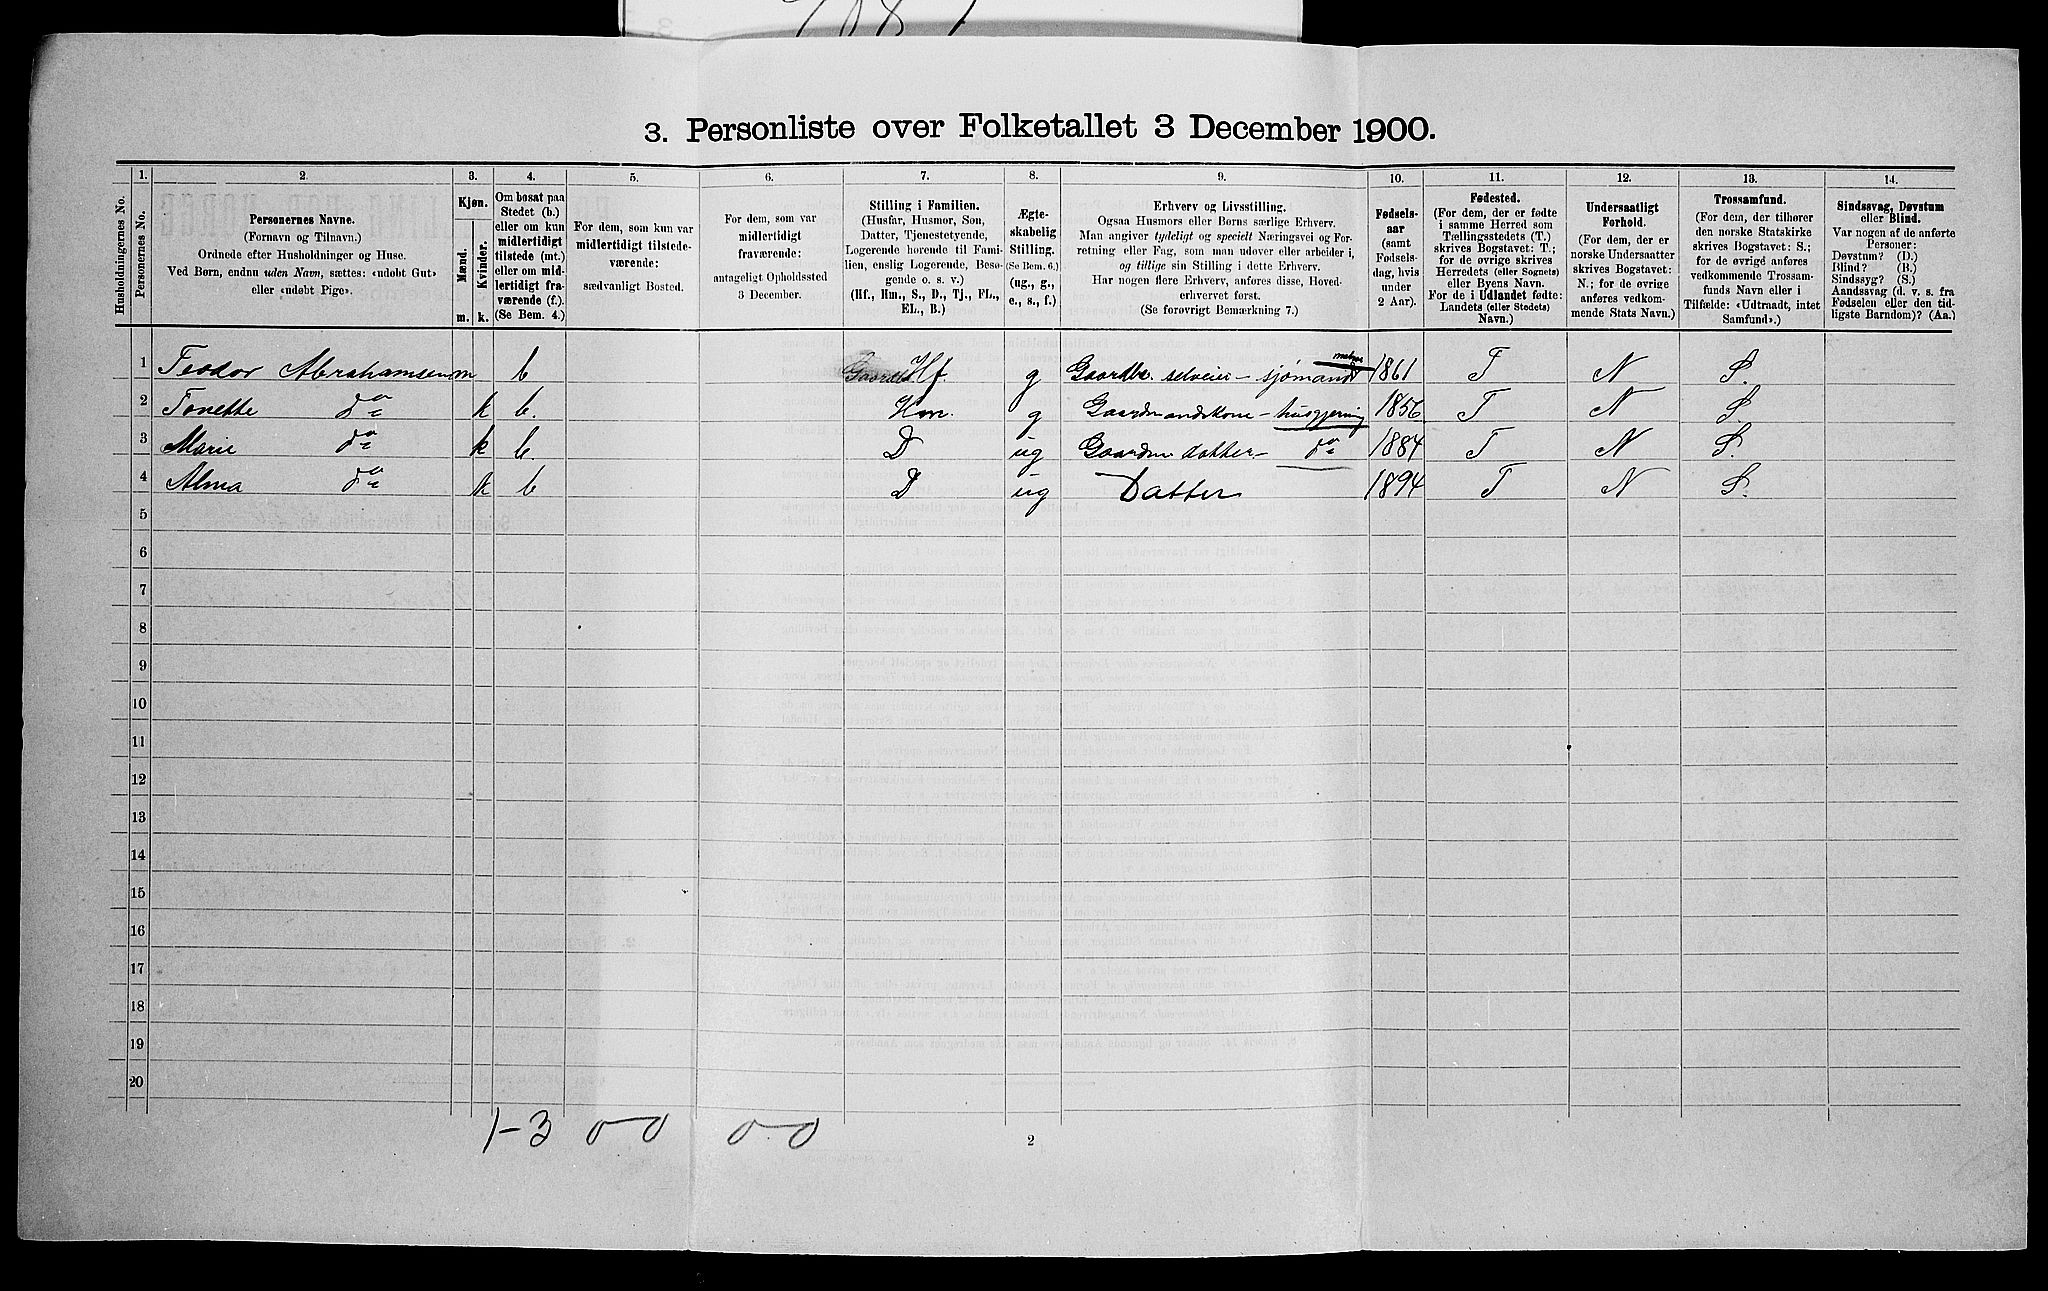 3. Personliste over Folketallet 3 December 1900.
1. 2. 3. 4. 5. 6. 7. 8. 9. 10. 11. 12. 13. 14.
Husholdningernes No.
Personernes No.
Personernes Navne.
(Fornavn og Tilnavn.)
Ordnede efter Husholdninger og Huse.
Ved Børn, endnu uden Navn, sættes: «udøbt Gut»
eller «udøbt Pige».
Kjøn.
Mænd.
Kvinder.
m. k.
Om bosat paa
Stedet (b.)
eller om kun
midlertidigt
tilstede (mt.)
eller om mid-
lertidigt fra-
værende (f.)
(Se Bem. 4.)
For dem, som kun var
midlertidigt tilstede-
værende:
sædvanligt Bosted.
For dem, som var
midlertidigt
fraværende:
antageligt Opholdssted
3 December.
Stilling i Familien.
(Husfar, Husmor, Søn,
Datter, Tjenestetyende,
Logerende hørende til Fami-
lien, enslig Logerende, Besø-
gende o. s. v.)
(Hf., Hm., S., D., Tj., FL.,
EL., B.)
Ægte-
skabelig
Stilling.
(Se Bem. 6.)
(ug., g.,
e., s., f.)
Erhverv og Livsstilling.
Ogsaa Husmors eller Børns særlige Erhverv.
Man angiver tydeligt og specielt Næringsvei og For-
retning eller Fag, som man udøver eller arbeider i,
og tillige sin Stilling i dette Erhverv.
Har nogen flere Erhverv, anføres disse, Hoved-
erhvervet først.
(Se forøvrigt Bemærkning 7.)
Fødsels-
aar
(samt
Fødsels-
dag, hvis
under
2 Aar).
Fødested.
(For dem, der er fødte
i samme Herred som
Tællingsstedets (T.)
skrives Bogstavet: T.;
for de øvrige skrives
Herredets (eller Sognets)
eller Byens Navn.
For de i Udlandet fødte:
Landets (eller Stedets)
Navn.)
Undersaatligt
Forhold.
(For dem, der er
norske Undersaatter
skrives Bogstavet:
N.; for de øvrige
anføres vedkom-
mende Stats Navn.)
Trossamfund.
(For dem, der tilhører
den norske Statskirke
skrives Bogstavet: S.;
for de øvrige anføres
vedkommende Trossam-
funds Navn eller i
Tilfælde: «Udtraadt, intet
Samfund».)
Sindssvag, Døvstum
eller Blind.
Var nogen af de anførte
Personer:
Døvstum? (D.)
Blind? (B.)
Sindssyg? (S.)
Aandssvag (d. v. s. fra
Fødselen eller den tid-
ligste Barndom)? (Aa.)
1 Teodor Abrahamsen m b Hf. g Gaardbr. selveier - sjømand 1861 T N S.
2 Tonette do k b. Hm. g Gaardmandskone - husgjerning 1856 T N S.
3 Marie do k b. D ug Gaardm datter - do 1884 T N S.
4 Alma do k b D ug Datter 1894 T N S.
5
6
7
8
9
10
11
12
13
14
15
16
17
18
19
20
1-3 0-0 0-0
2